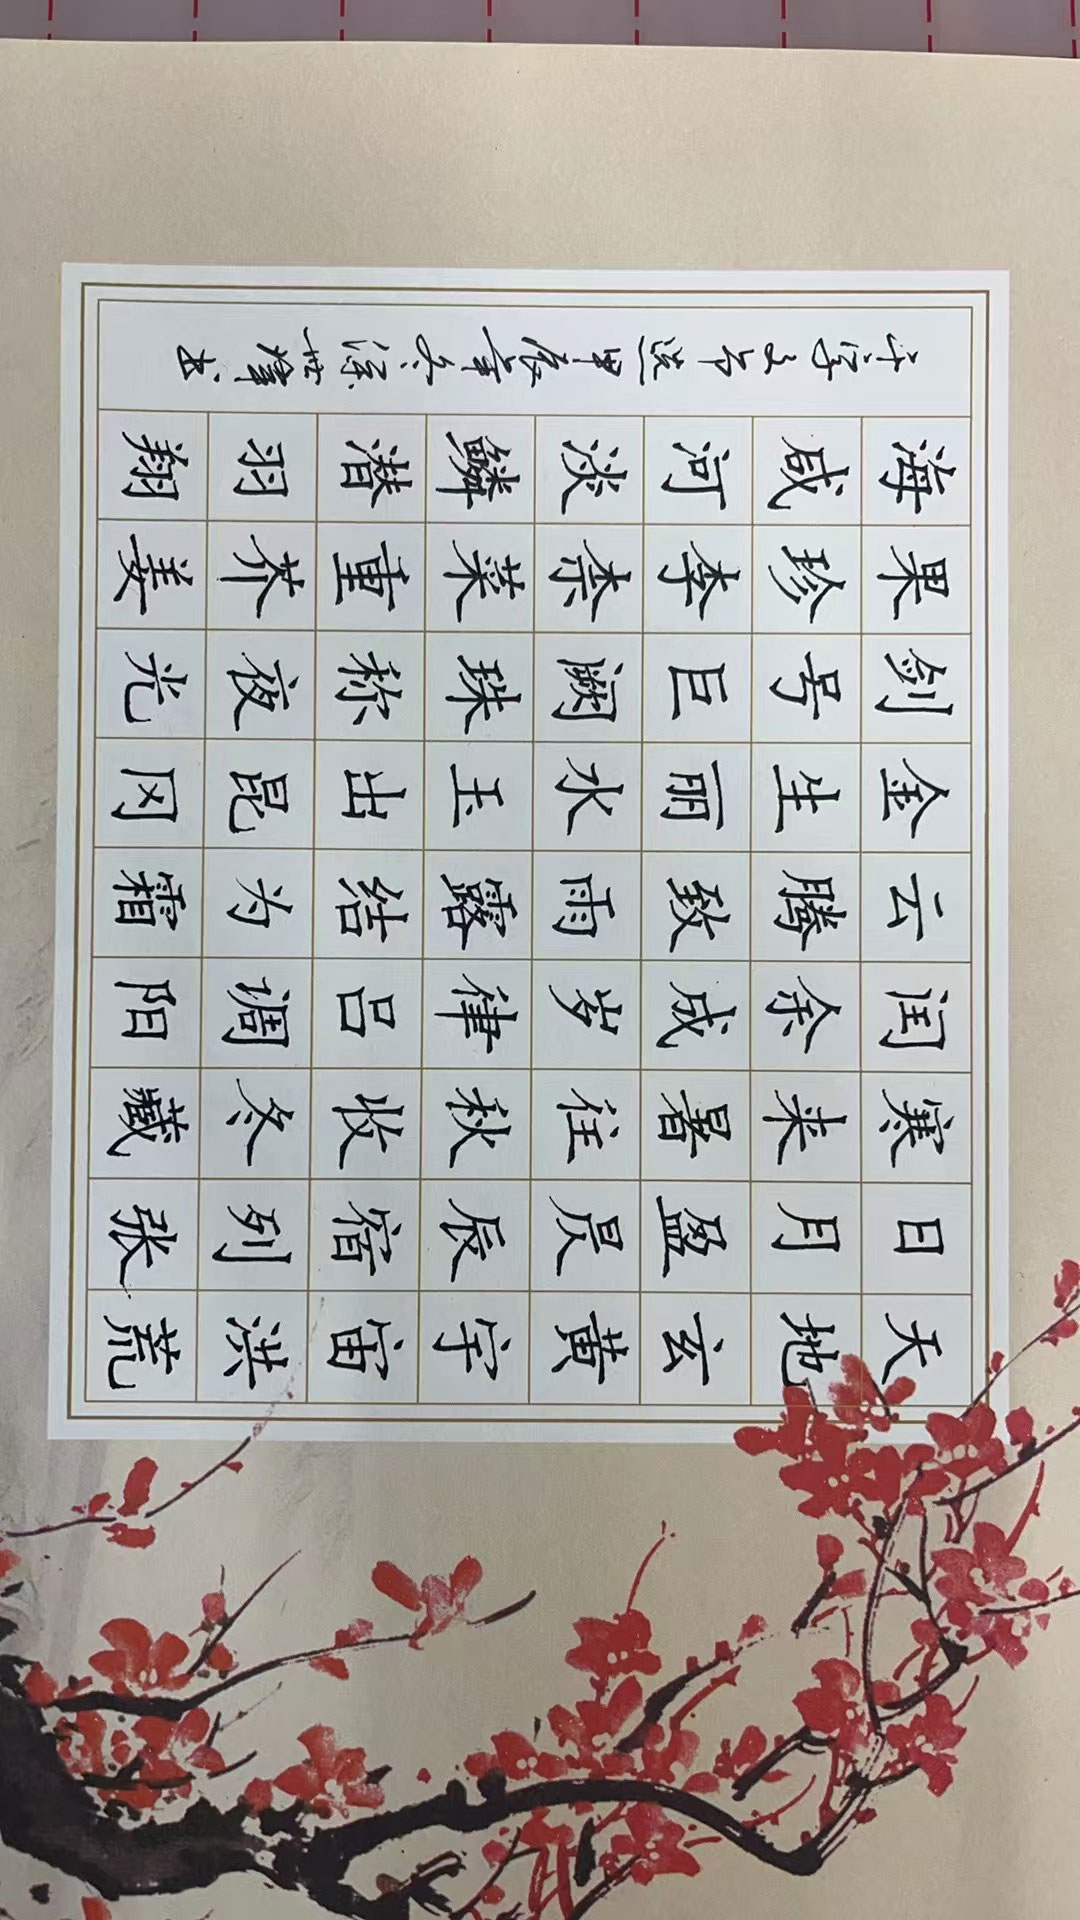 天地玄黄宇宙洪荒
日月盈昃辰宿列张
寒来暑往秋收冬藏
闰余成岁律吕调阳
云腾致雨露结为霜
金生丽水玉出昆冈
剑号巨阙珠称夜光
果珍李柰菜重芥姜
海咸河淡鳞潜羽翔
千字文节选甲辰年冬世书